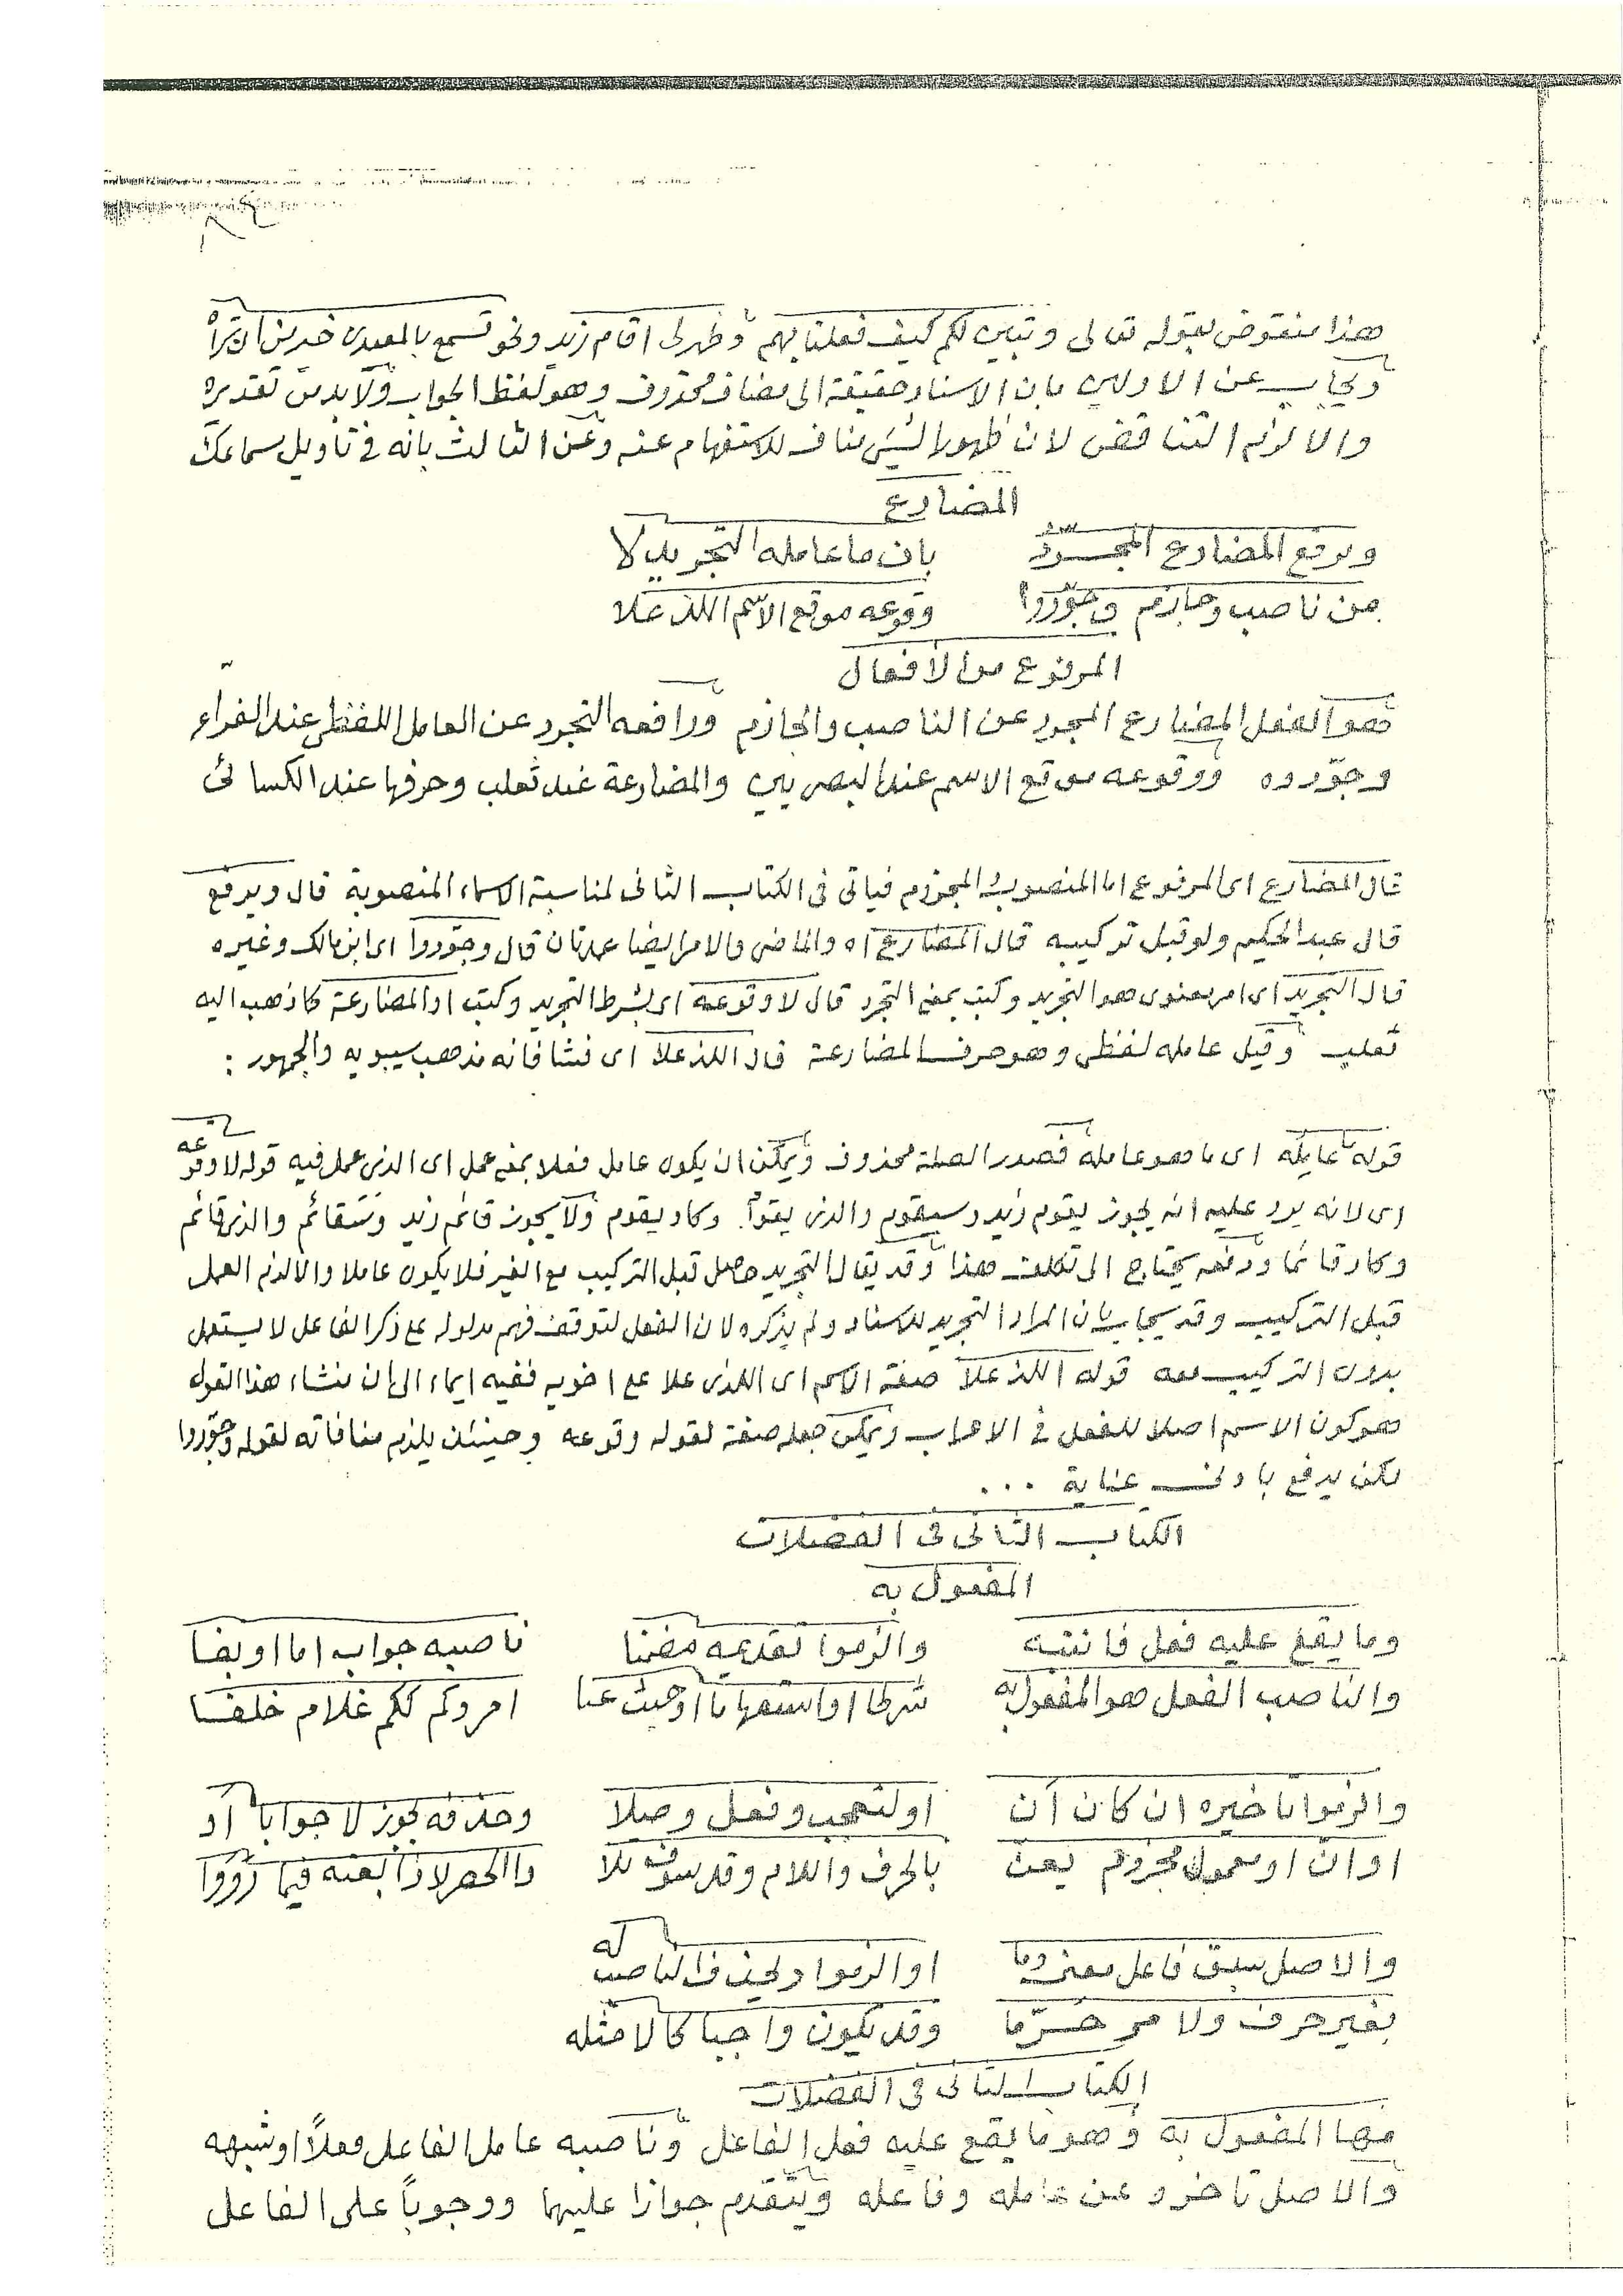 هذا منقوض بقوله تعالى وتبين لكم كيف فعلنا بهم وظهر لى اقام زيد ونحو تسمع بالمعيدى خير من ان تراه
ويجاب عن الاولين بان الاسناد حقيقة الى مضاف محذوف وهو لفظ الجواب ولا بد من تقديره
والا لزم التناقض لان ظهور الشئ مناف للاستفهام عنه وعن الثالث بانه فى تاويل سماعك
المضارع
ويرفع المضارع المجرد بان ما عامله التجريد لا
من ناصب وجازم وجوّزوا وقوعه موقع الاسم اللذ علا
المرفوع من الافعال
هو الفعل المضارع المجرد عن الناصب والجازم ورافعه التجرد عن العامل اللفظى عند الفراء
وجوّزوه ووقوعه موقع الاسم عند البصريين والمضارعة عند ثعلب وحرفها عند الكسائى
قال المضارع اى المرفوع اما المنصوب والمجزوم فياتى فى الكتاب الثانى لمناسبة الاسماء المنصوبة قال ويرفع
قال عبد الحكيم ولو قبل تركيبه قال المضارع اه والماضى والامر ايضا عمدتان قال وجوّزوا اى ابن مالك وغيره
قال التجريد اى امر معنوى هو التجريد وكتب بمعنى التجرد قال لا وقوعه اى بشرط التجريد وكتب او المضارعة كما ذهب اليه
ثعلب وقيل عامله لفظى وهو حرف المضارعة قال اللذ علا اى فشا فانه مذهب سيبويه والجمهور :
قوله ما عامله اى ما هو عامله فصدر الصلة محذوف ويمكن ان يكون عامل فعلا بمعنى عمل اى الذى عمل فيه قوله لا وقوعه
اى لانه يرد عليه انه يجوز يقوم زيد وسيقوم والذى يقوم وكاد يقوم ولا يجوز قائم زيد وسقائم والذى قائم
وكاد قائما ودفعه يحتاج الى تكلف هذا وقد يقال التجريد حاصل قبل التركيب مع الغير فلا يكون عاملا والا لزم العمل
قبل التركيب وقد يجاب بان المراد التجريد للاسناد ولم يذكره لان الفعل لتوقف فهم مدلوله على ذكر الفاعل لا يستعمل
بدون التركيب معه قوله اللذ علا صفة الاسم اى اللذى علا على اخويه ففيه ايماء الى ان منشاء هذا القول
هو كون الاسم اصلا للفعل فى الاعراب ويمكن جعله صفة لقوله وقوعه وحينئذ يلزم منافاته لقوله وجوّزوا
لكن يدفع بادنى عناية ...
الكتاب الثانى فى الفضلات
المفعول به
وما يقع عليه فعل فانتبه والزموا تقديمه مضمنا ناصبه جواب اما او بفا
والناصب الفعل هو المفعول به شرطا او استفهاما او حيث عنا امر وكم لكم غلام خلفا
والزموا تاخيره ان كان ان او لتعجب وفعل وصلا وحذفه يجوز لا جوابا او
او ان او معمول مجزوم يعن بالحرف واللام وقد سوف تلا والحصر لا ذا بعنه فيما رووا
والاصل سبق فاعل معنى وما او الزموا ويحذف الناصب له
بغير حرف ولا مى جرّما وقد يكون واجبا كالامثله
الكتاب الثانى فى الفضلات
منها المفعول به وهو ما يقع عليه فعل الفاعل وناصبه عامل الفاعل فعلاً او شبهه
والاصل تاخره عن عامله وفاعله ويتقدم جوازا عليهما ووجوباً على الفاعل